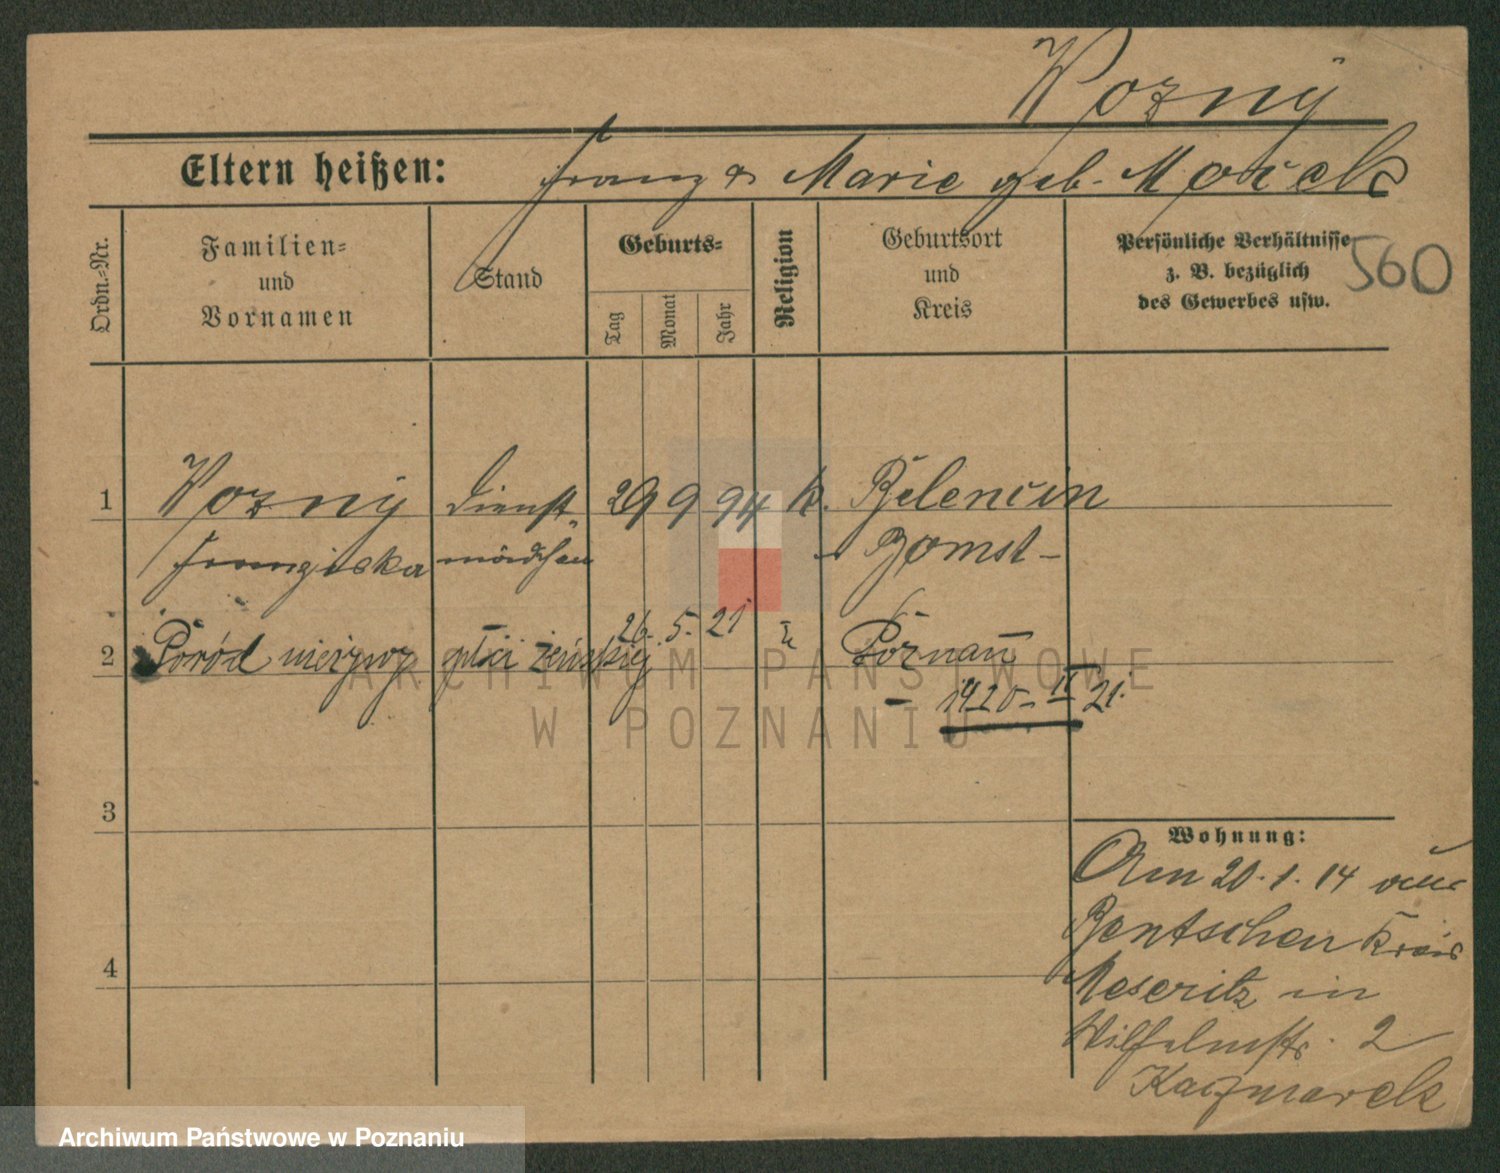 Wozny
Eltern heißen: Franz & Marie geb. Mocek
Ordn.-Nr.
Familien-
und
Vornamen
Stand
Geburts-
Tag
Monat
Jahr
Religion
Geburtsort
und
Kreis
Persönliche Verhältnisse
z. B. bezüglich
des Gewerbes usw.
560
1 Wozny Dienst- 29 9 94 k. Belencin
Franziska mädchen - Bomst -
26. 5. 21
2 Poród nieżyw. płci żeńskiej k Poznań
- 1420 - II 21.
3
Wohnung:
Am 20.1.14 aus
Bentschen Kreis
4
Meseritz in
Wilhelmstr. 2
Kaczmarek
ARCHIWUM PAŃSTWOWE
W POZNANIU
Archiwum Państwowe w Poznaniu